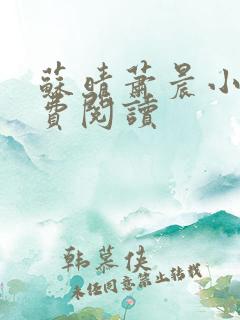 蘇晴蕭晨小
費閱讀
韩慕侠
未经同意禁止转载